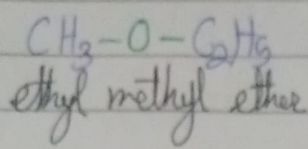 CH₃-O-C₂H₅
ethyl methyl ether